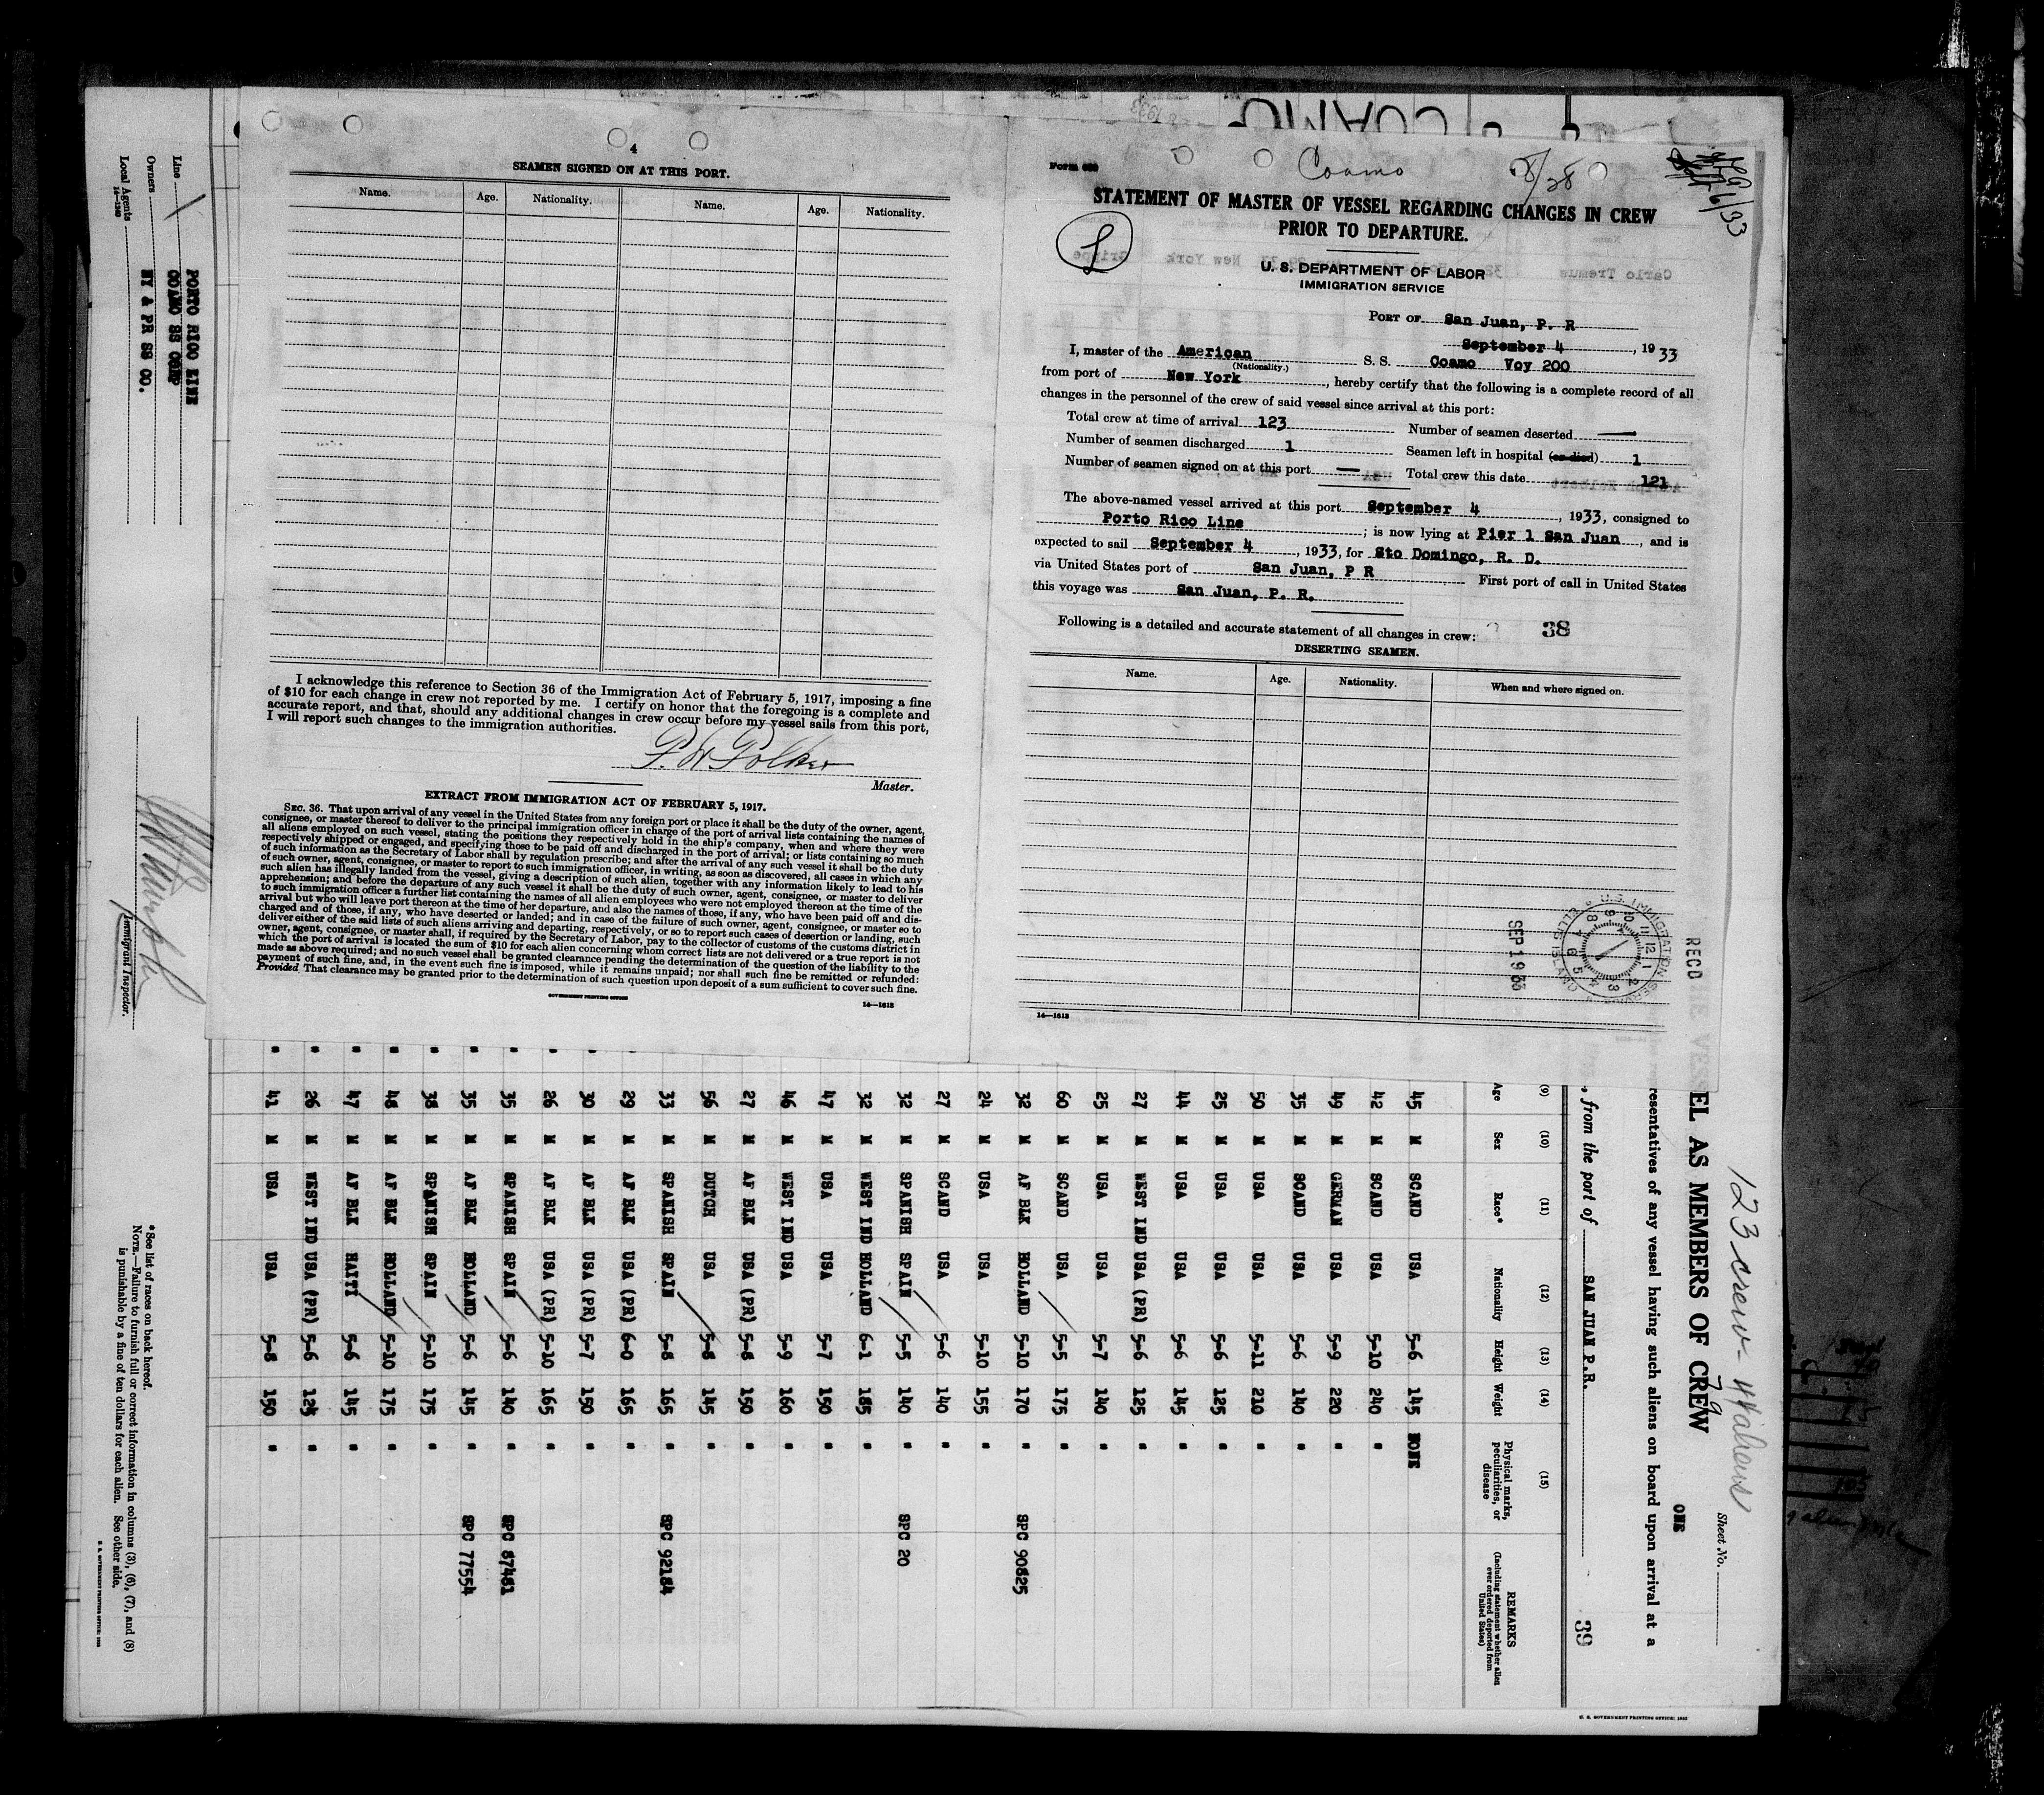 4
SEAMEN SIGNED ON AT THIS PORT.
Name. Age. Nationality. Name. Age. Nationality.
I acknowledge this reference to Section 36 of the Immigration Act of February 5, 1917, imposing a fine
of $10 for each change in crew not reported by me. I certify on honor that the foregoing is a complete and
accurate report, and that, should any additional changes in crew occur before my vessel sails from this port,
I will report such changes to the immigration authorities.
Master.
EXTRACT FROM IMMIGRATION ACT OF FEBRUARY 5, 1917.
SEC. 36. That upon arrival of any vessel in the United States from any foreign port or place it shall be the duty of the owner, agent,
consignee, or master thereof to deliver to the principal immigration officer in charge of the port of arrival lists containing the names of
all aliens employed on such vessel, stating the positions they respectively hold in the ship's company, when and where they were
respectively shipped or engaged, and specifying those to be paid off and discharged in the port of arrival; or lists containing so much
of such information as the Secretary of Labor shall by regulation prescribe; and after the arrival of any such vessel it shall be the duty
of such owner, agent, consignee, or master to report to such immigration officer, in writing, as soon as discovered, all cases in which any
such alien has illegally landed from the vessel, giving a description of such alien, together with any information likely to lead to his
apprehension; and before the departure of any such vessel it shall be the duty of such owner, agent, consignee, or master to deliver
to such immigration officer a further list containing the names of all alien employees who were not employed thereon at the time of the
arrival but who will leave port thereon at the time of her departure, and also the names of those, if any, who have been paid off and dis-
charged and of those, if any, who have deserted or landed; and in case of the failure of such owner, agent, consignee, or master so to
deliver either of the said lists of such aliens arriving and departing, respectively, or so to report such cases of desertion or landing, such
owner, agent, consignee, or master shall, if required by the Secretary of Labor, pay to the collector of customs of the customs district in
which the port of arrival is located the sum of $10 for each alien concerning whom correct lists are not delivered or a true report is not
made as above required; and no such vessel shall be granted clearance pending the determination of the question of the liability to the
payment of such fine, and, in the event such fine is imposed, while it remains unpaid; nor shall such fine be remitted or refunded:
Provided That clearance may be granted prior to the determination of such question upon deposit of a sum sufficient to cover such fine.
GOVERNMENT PRINTING OFFICE
14—1613
COAMO
Form
Coamo 8/28
STATEMENT OF MASTER OF VESSEL REGARDING CHANGES IN CREW
PRIOR TO DEPARTURE.
L
U. S. DEPARTMENT OF LABOR
IMMIGRATION SERVICE
PORT OF San Juan, P. R
September 4, 1933
I, master of the American S. S. Coamo Voy 200
(Nationality.)
from port of New York, hereby certify that the following is a complete record of all
changes in the personnel of the crew of said vessel since arrival at this port:
Total crew at time of arrival 123 Number of seamen deserted —
Number of seamen discharged 1 Seamen left in hospital (or died) 1
Number of seamen signed on at this port — Total crew this date 121
The above-named vessel arrived at this port September 4, 1933, consigned to
Porto Rico Line; is now lying at Pier 1 San Juan, and is
expected to sail September 4, 1933, for Sto Domingo, R. D.
via United States port of San Juan, P R First port of call in United States
this voyage was San Juan, P. R.
Following is a detailed and accurate statement of all changes in crew: 38
DESERTING SEAMEN.
Name. Age. Nationality. When and where signed on.
SEP 1933
RECD
14—1613
Line PORTO RICO LINE
COAMO SS CORP
Owners NY & PR SS CO.
Local Agents
14—1240
Immigrant Inspector.
123 crew - 79 aliens
Sheet No. ONE
EL AS MEMBERS OF CREW
resentatives of any vessel having such aliens on board upon arrival at a
, from the port of SAN JUAN P.R. 39
(9) (10) (11) (12) (13) (14) (15)
Age Sex Race* Nationality Height Weight Physical marks, peculiarities, or disease REMARKS (Including statement whether alien ever ordered deported from United States)
45 M SCAND USA 5-6 145 NONE
42 M SCAND USA 5-10 240 "
49 M GERMAN USA 5-9 220 "
35 M SCAND USA 5-6 140 "
50 M USA USA 5-11 210 "
25 M USA USA 5-6 125 "
44 M USA USA 5-6 145 "
27 M WEST IND USA (PR) 5-6 125 "
25 M USA USA 5-7 140 "
60 M SCAND USA 5-5 175 "
32 M AF BLK HOLLAND 5-10 170 " SPC 90825
24 M USA USA 5-10 155 "
27 M SCAND USA 5-6 140 "
32 M SPANISH SPAIN 5-5 140 " SPC 20
32 M WEST IND HOLLAND 6-1 185 "
47 M USA USA 5-7 150 "
46 M WEST IND USA 5-9 160 "
27 M AF BLK USA (PR) 5-8 150 "
56 M DUTCH USA 5-8 145 "
33 M SPANISH SPAIN 5-8 165 " SPC 92184
29 M AF BLK USA (PR) 6-0 165 "
30 M AF BLK USA (PR) 5-7 150 "
26 M AF BLK USA (PR) 5-10 165 "
35 M SPANISH SPAIN 5-6 140 " SPC 87481
35 M AF BLK HOLLAND 5-6 145 " SPC 77554
38 M SPANISH SPAIN 5-10 175 "
48 M AF BLK HOLLAND 5-10 175 "
47 M AF BLK HAITI 5-6 145 "
26 M WEST IND USA (PR) 5-6 125 "
41 M USA USA 5-8 150 "
*See list of races on back hereof.
NOTE.—Failure to furnish full or correct information in columns (3), (6), (7), and (8)
is punishable by a fine of ten dollars for each alien. See other side.
U. S. GOVERNMENT PRINTING OFFICE: 1932